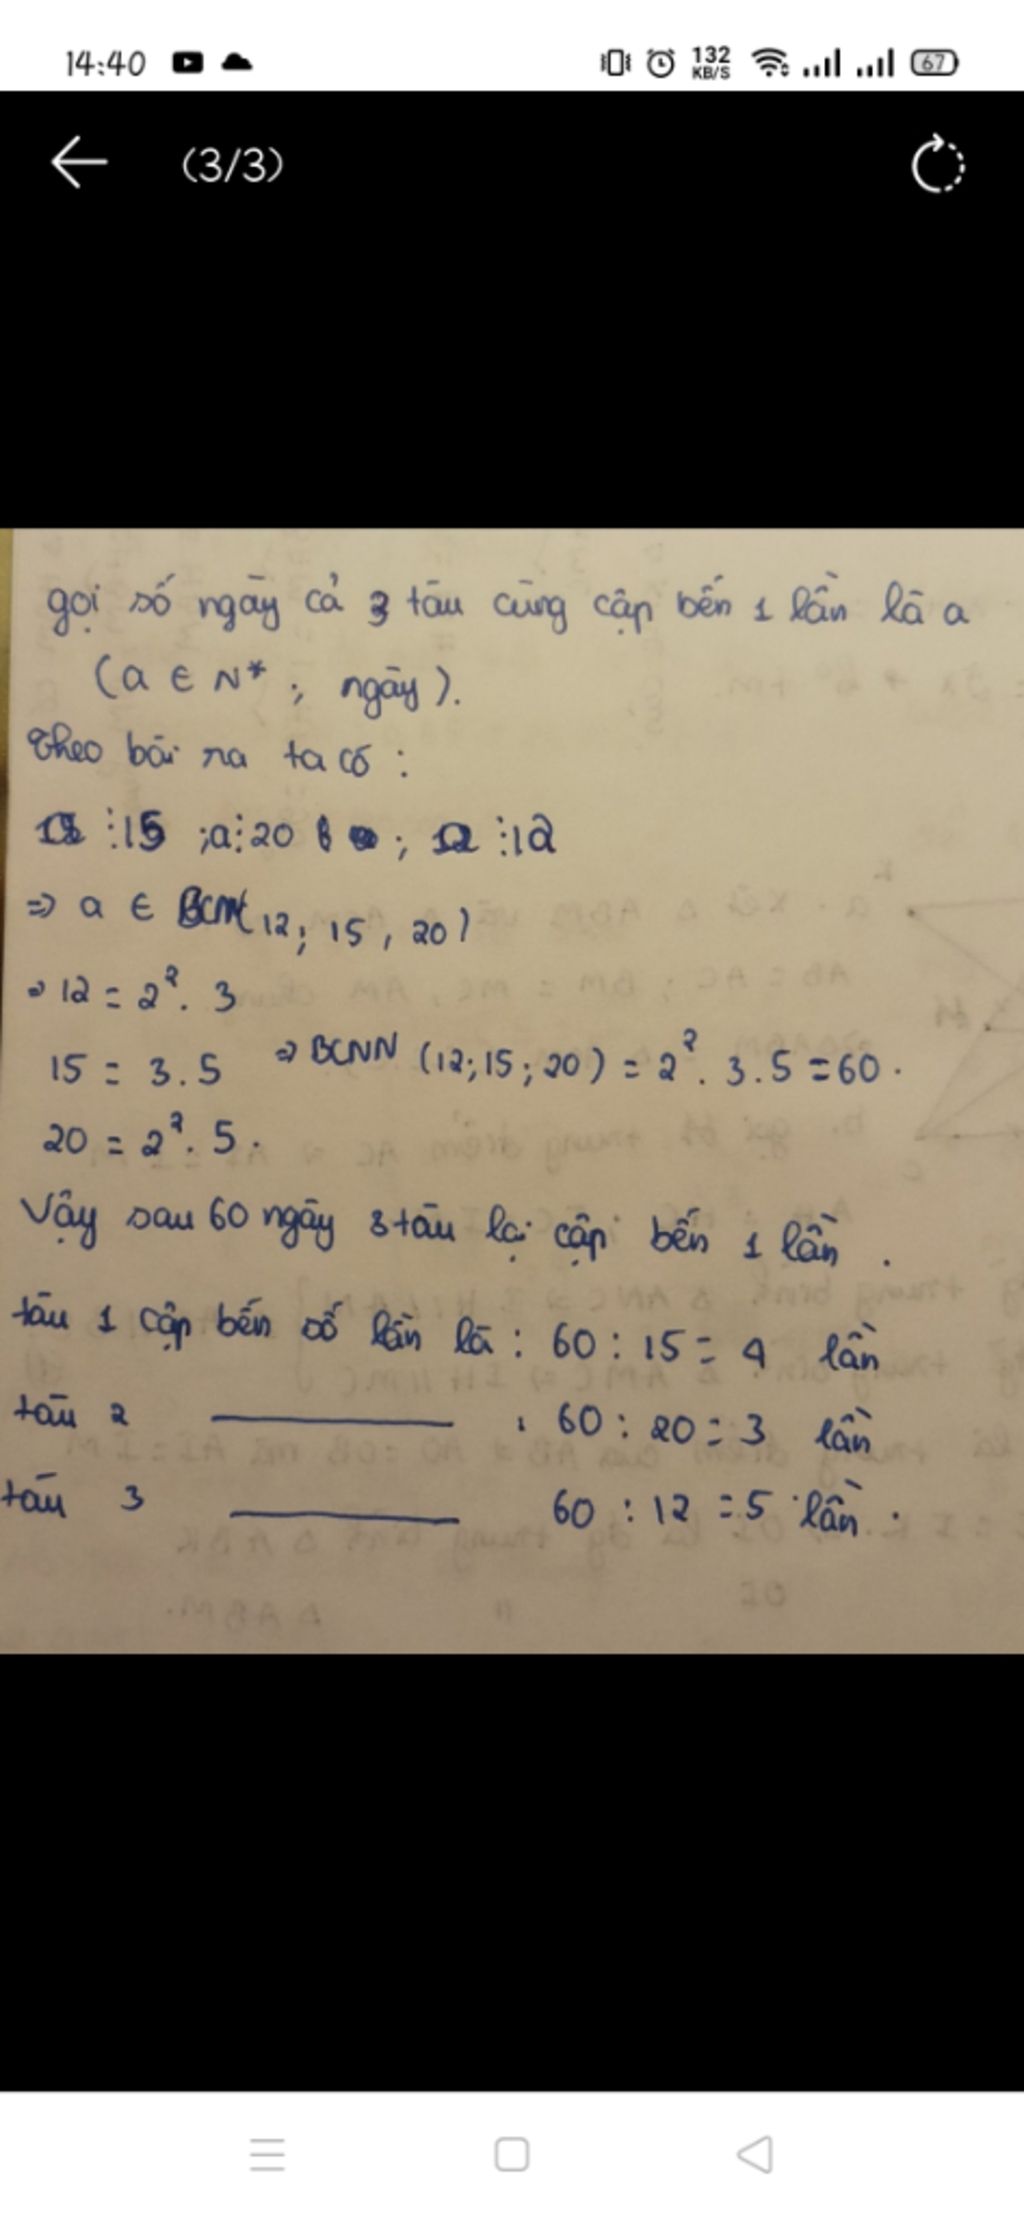 14:40 132 KB/S 67
(3/3)
gọi số ngày cả 3 tàu cùng cập bến 1 lần là a
(a ∈ N* ; ngày).
Theo bài ra ta có :
a ⋮ 15 ; a ⋮ 20 ; a ⋮ 12
⇒ a ∈ BCNN(12; 15, 20)
⇒ 12 = 2². 3
15 = 3.5 ⇒ BCNN (12; 15; 20) = 2². 3.5 = 60.
20 = 2². 5.
Vậy sau 60 ngày 3 tàu lại cập bến 1 lần.
tàu 1 cập bến số lần là : 60 : 15 = 4 lần
tàu 2 ——— : 60 : 20 = 3 lần
tàu 3 ——— 60 : 12 = 5 lần.